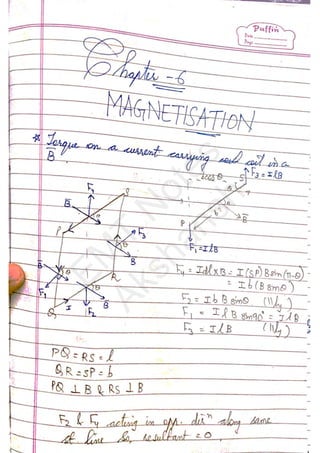 Puffin
Date
Page
Chapter - 6
MAGNETISATION
* Torque on a current carrying coil in a
B.
F₃ = IlB
F₁ = IlB
F₄ = Idl×B = I(SP)B sin(π-θ)
= Ib(B sinθ)
F₂ = Ib B sinθ (||ly)
F₁ = IlB sin90° = IlB
F₃ = IlB (||ly)
PQ = RS = l
QR = SP = b
PQ ⊥ B & RS ⊥ B
F₂ & F₄ acting in opp. dirⁿ along same
st line so, resultant = 0.